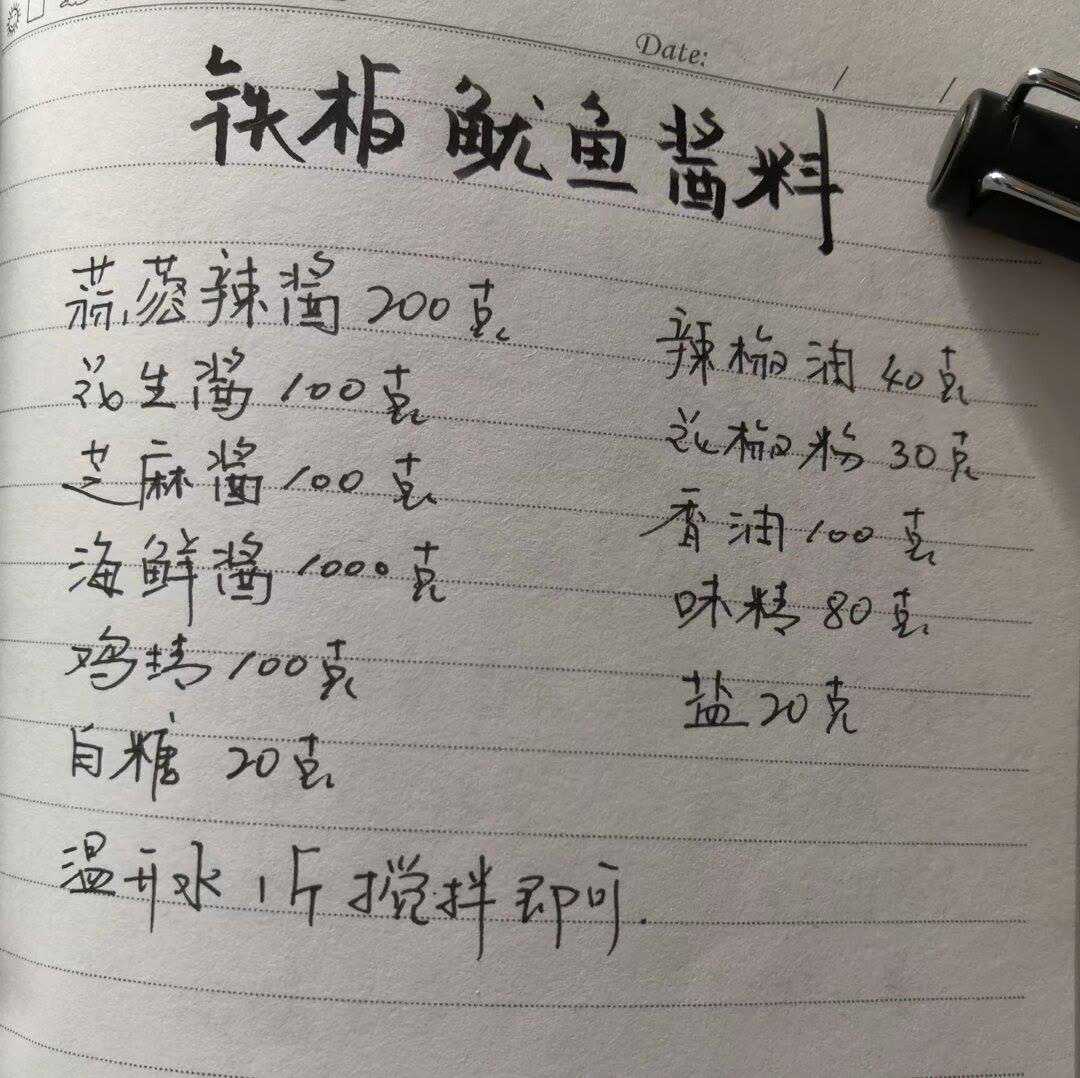 Date: / /
铁板鱿鱼酱料
蒜蓉辣酱 200克
花生酱 100克
芝麻酱 100克
海鲜酱 1000克
鸡精 100克
白糖 20克
辣椒油 40克
花椒粉 30克
香油 100克
味精 80克
盐 20克
温开水 1斤 搅拌即可.